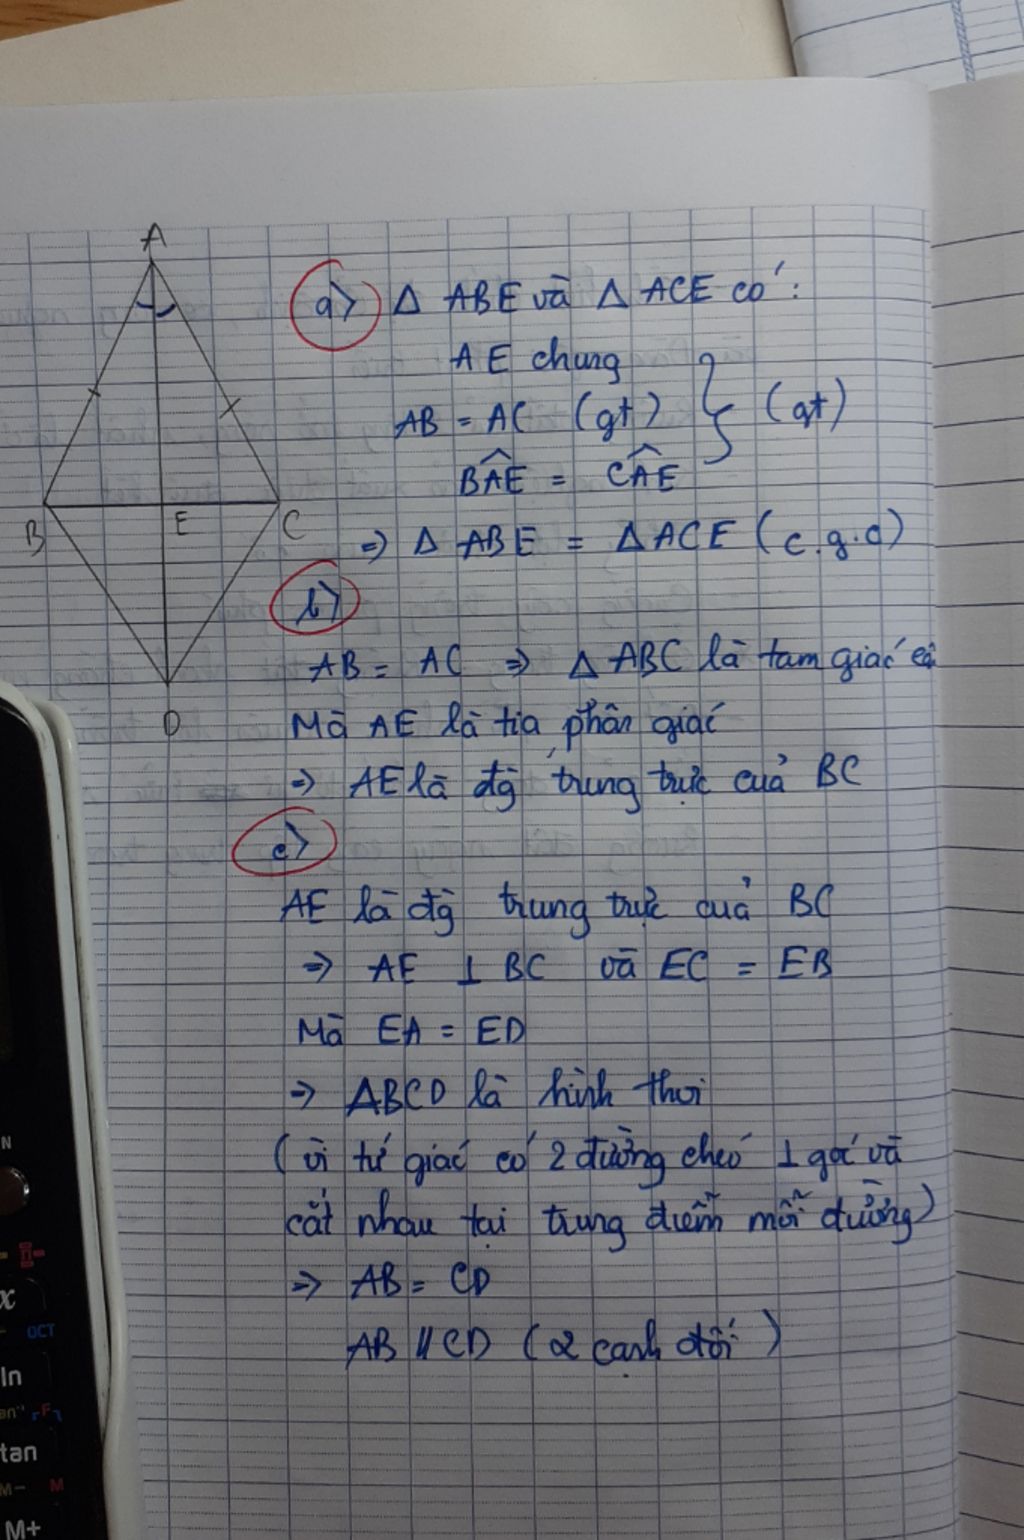 A
B
E
C
D
a> Δ ABE và Δ ACE có :
AE chung
AB = AC (gt) } (gt)
BÂE = CÂE
=> Δ ABE = ΔACE (c.g.c)
b>
AB = AC => Δ ABC là tam giác
Mà AE là tia phân giác
=> AE là đg trung trực của BC
c>
AE là đg trung trực của BC
=> AE ⊥ BC và EC = EB
Mà EA = ED
=> ABCD là hình thoi
(vì tứ giác có 2 đường chéo ⊥ góc và
cắt nhau tại trung điểm mỗi đường)
=> AB = CD
AB // CD (2 cạnh đối)
N
x
OCT
ln
F
tan
M- M
M+